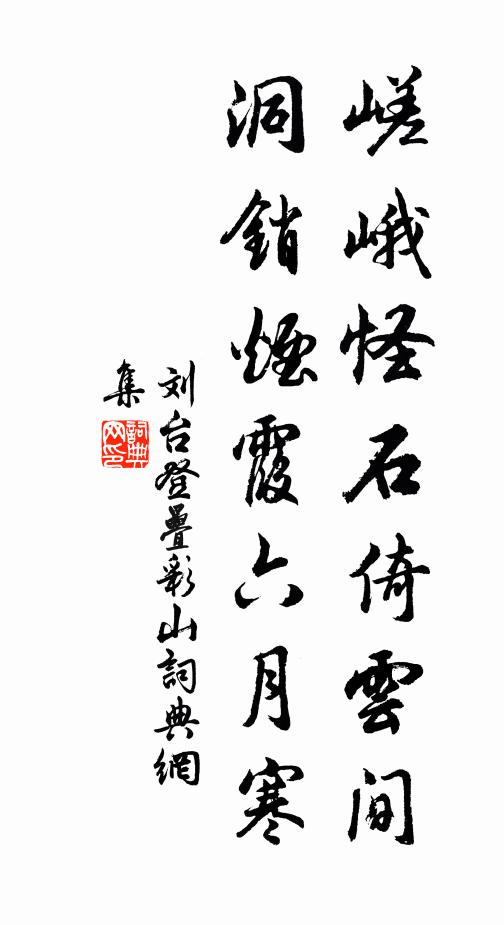 嵯峨怪石倚雲间
洞銷煙霞六月寒
刘台登疊彩山詞典網
集
詞典网印